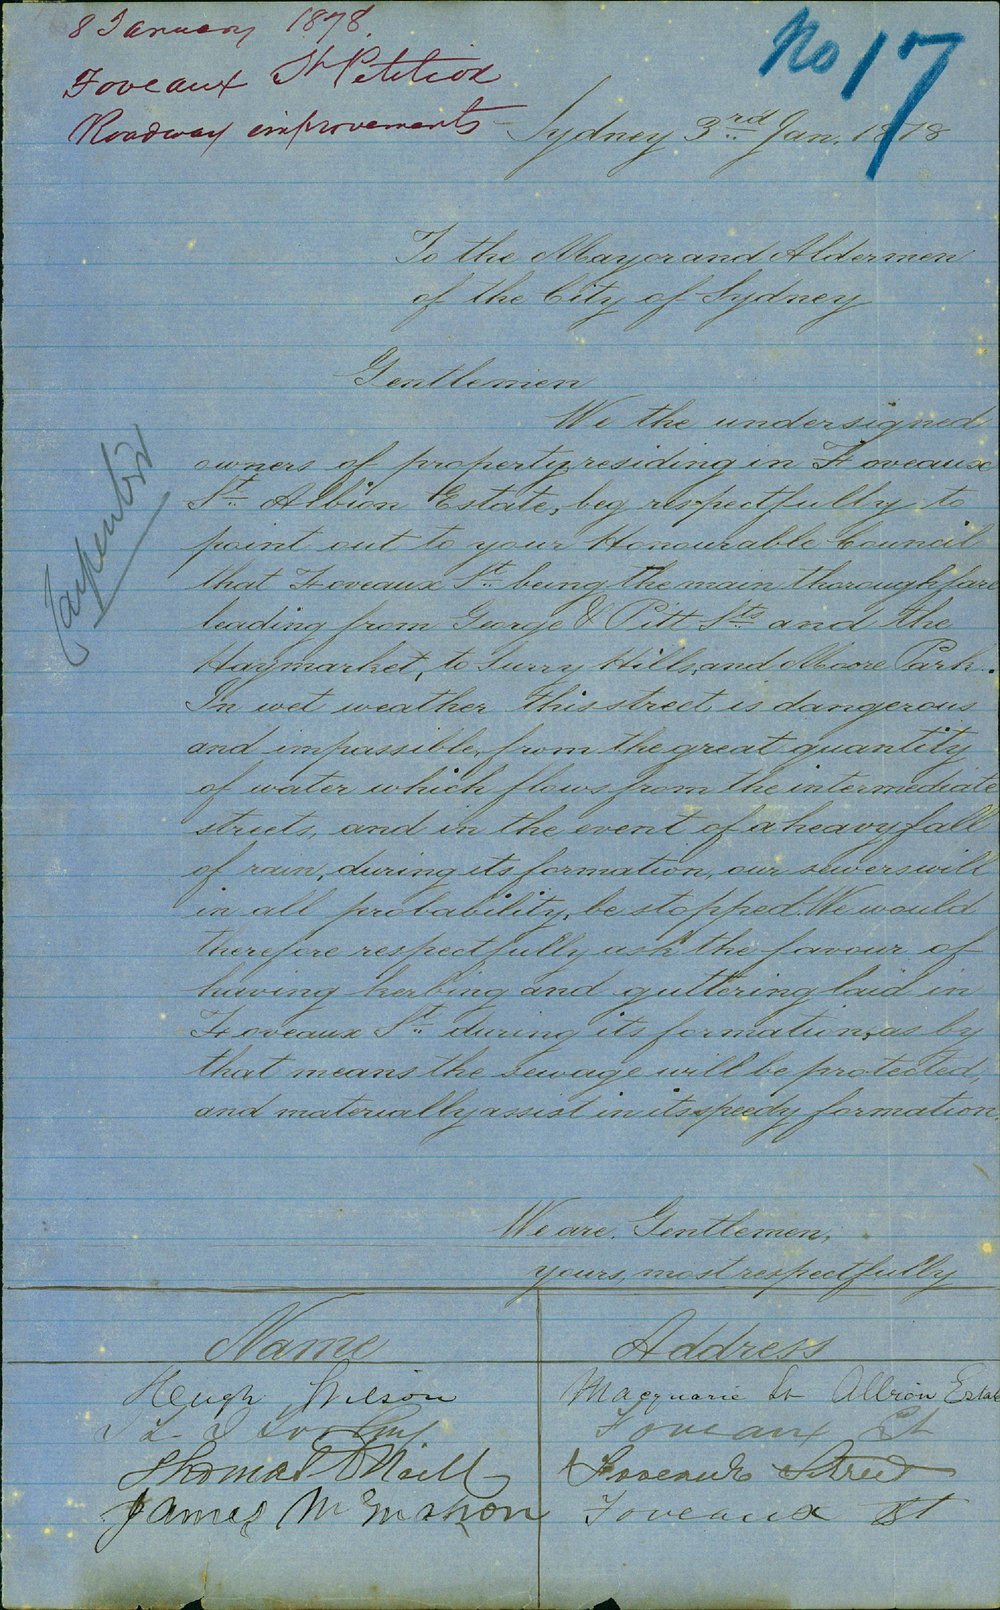 8 January 1878.
Foveaux St Petition
Roadway improvements
No 17
Sydney 3rd Jan. 1878
To the Mayor and Aldermen
of the City of Sydney
Gentlemen
We the undersigned
owners of property, residing in Foveaux
St. Albion Estate, beg respectfully to
point out to your Honourable Council
that Foveaux St. being the main thoroughfare
leading from George & Pitt Sts and the
Haymarket, to Surry Hills, and Moore Park.
In wet weather this street is dangerous
and impassible, from the great quantity
of water which flows from the intermediate
streets, and in the event of a heavy fall
of rain, during its formation, our sewers will
in all probability, be stopped. We would
therefore respectfully ask the favour of
having kerbing and guttering laid in
Foveaux St. during its formation, as by
that means the sewage will be protected,
and materially assist in its speedy formation.
We are, Gentlemen,
yours, most respectfully
Name Address
Hugh Wilson Macquarie St Albion Estate
Foveaux St
Thomas O'Neill Foveaux Street
James Foveaux St